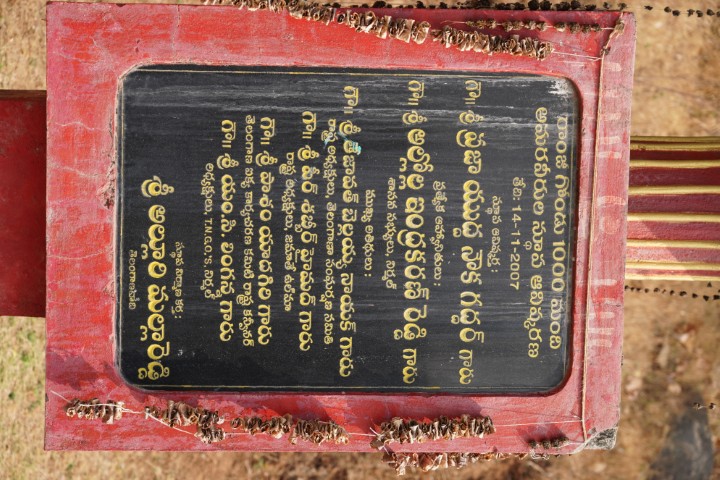 రాంజీ గోండు 1000 మంది
అమరవీరుల స్థూప ఆవిష్కరణ
తేది: 14-11-2007
స్థూప ఆవిష్కర్త :
గౌ॥ శ్రీ ప్రజా యుద్ద నౌక గద్దర్ గారు
ప్రత్యేక ఆహ్వానితులు :
గౌ॥ శ్రీ అల్లోల్ల ఇంద్రకరణ్ రెడ్డి గారు
శాసన సభ్యులు, నిర్మల్
ముఖ్య అతిథులు :
గౌ॥ శ్రీ తేజావత్ బెల్లయ్య నాయక్ గారు
రాష్ట్ర అధ్యక్షులు, తెలంగాణా సంఘర్షణ సమితి
గౌ॥ శ్రీ పీర్ శబ్బీర్ హైమద్ గారు
రాష్ట్ర అధ్యక్షులు, జమాతే ఉల్‌మా
గౌ॥ శ్రీ పాశం యాదగిరి గారు
తెలంగాణ ఐక్య కార్యచరణ కమిటి రాష్ట్ర కన్వీనర్
గౌ॥ శ్రీ యం.సి. లింగన్న గారు
అధ్యక్షులు, T.N.G.O.'S, నిర్మల్
స్థూప నిర్మాణ కర్త :
శ్రీ అల్లూరి మల్లారెడ్డి
తెలంగాణవాది